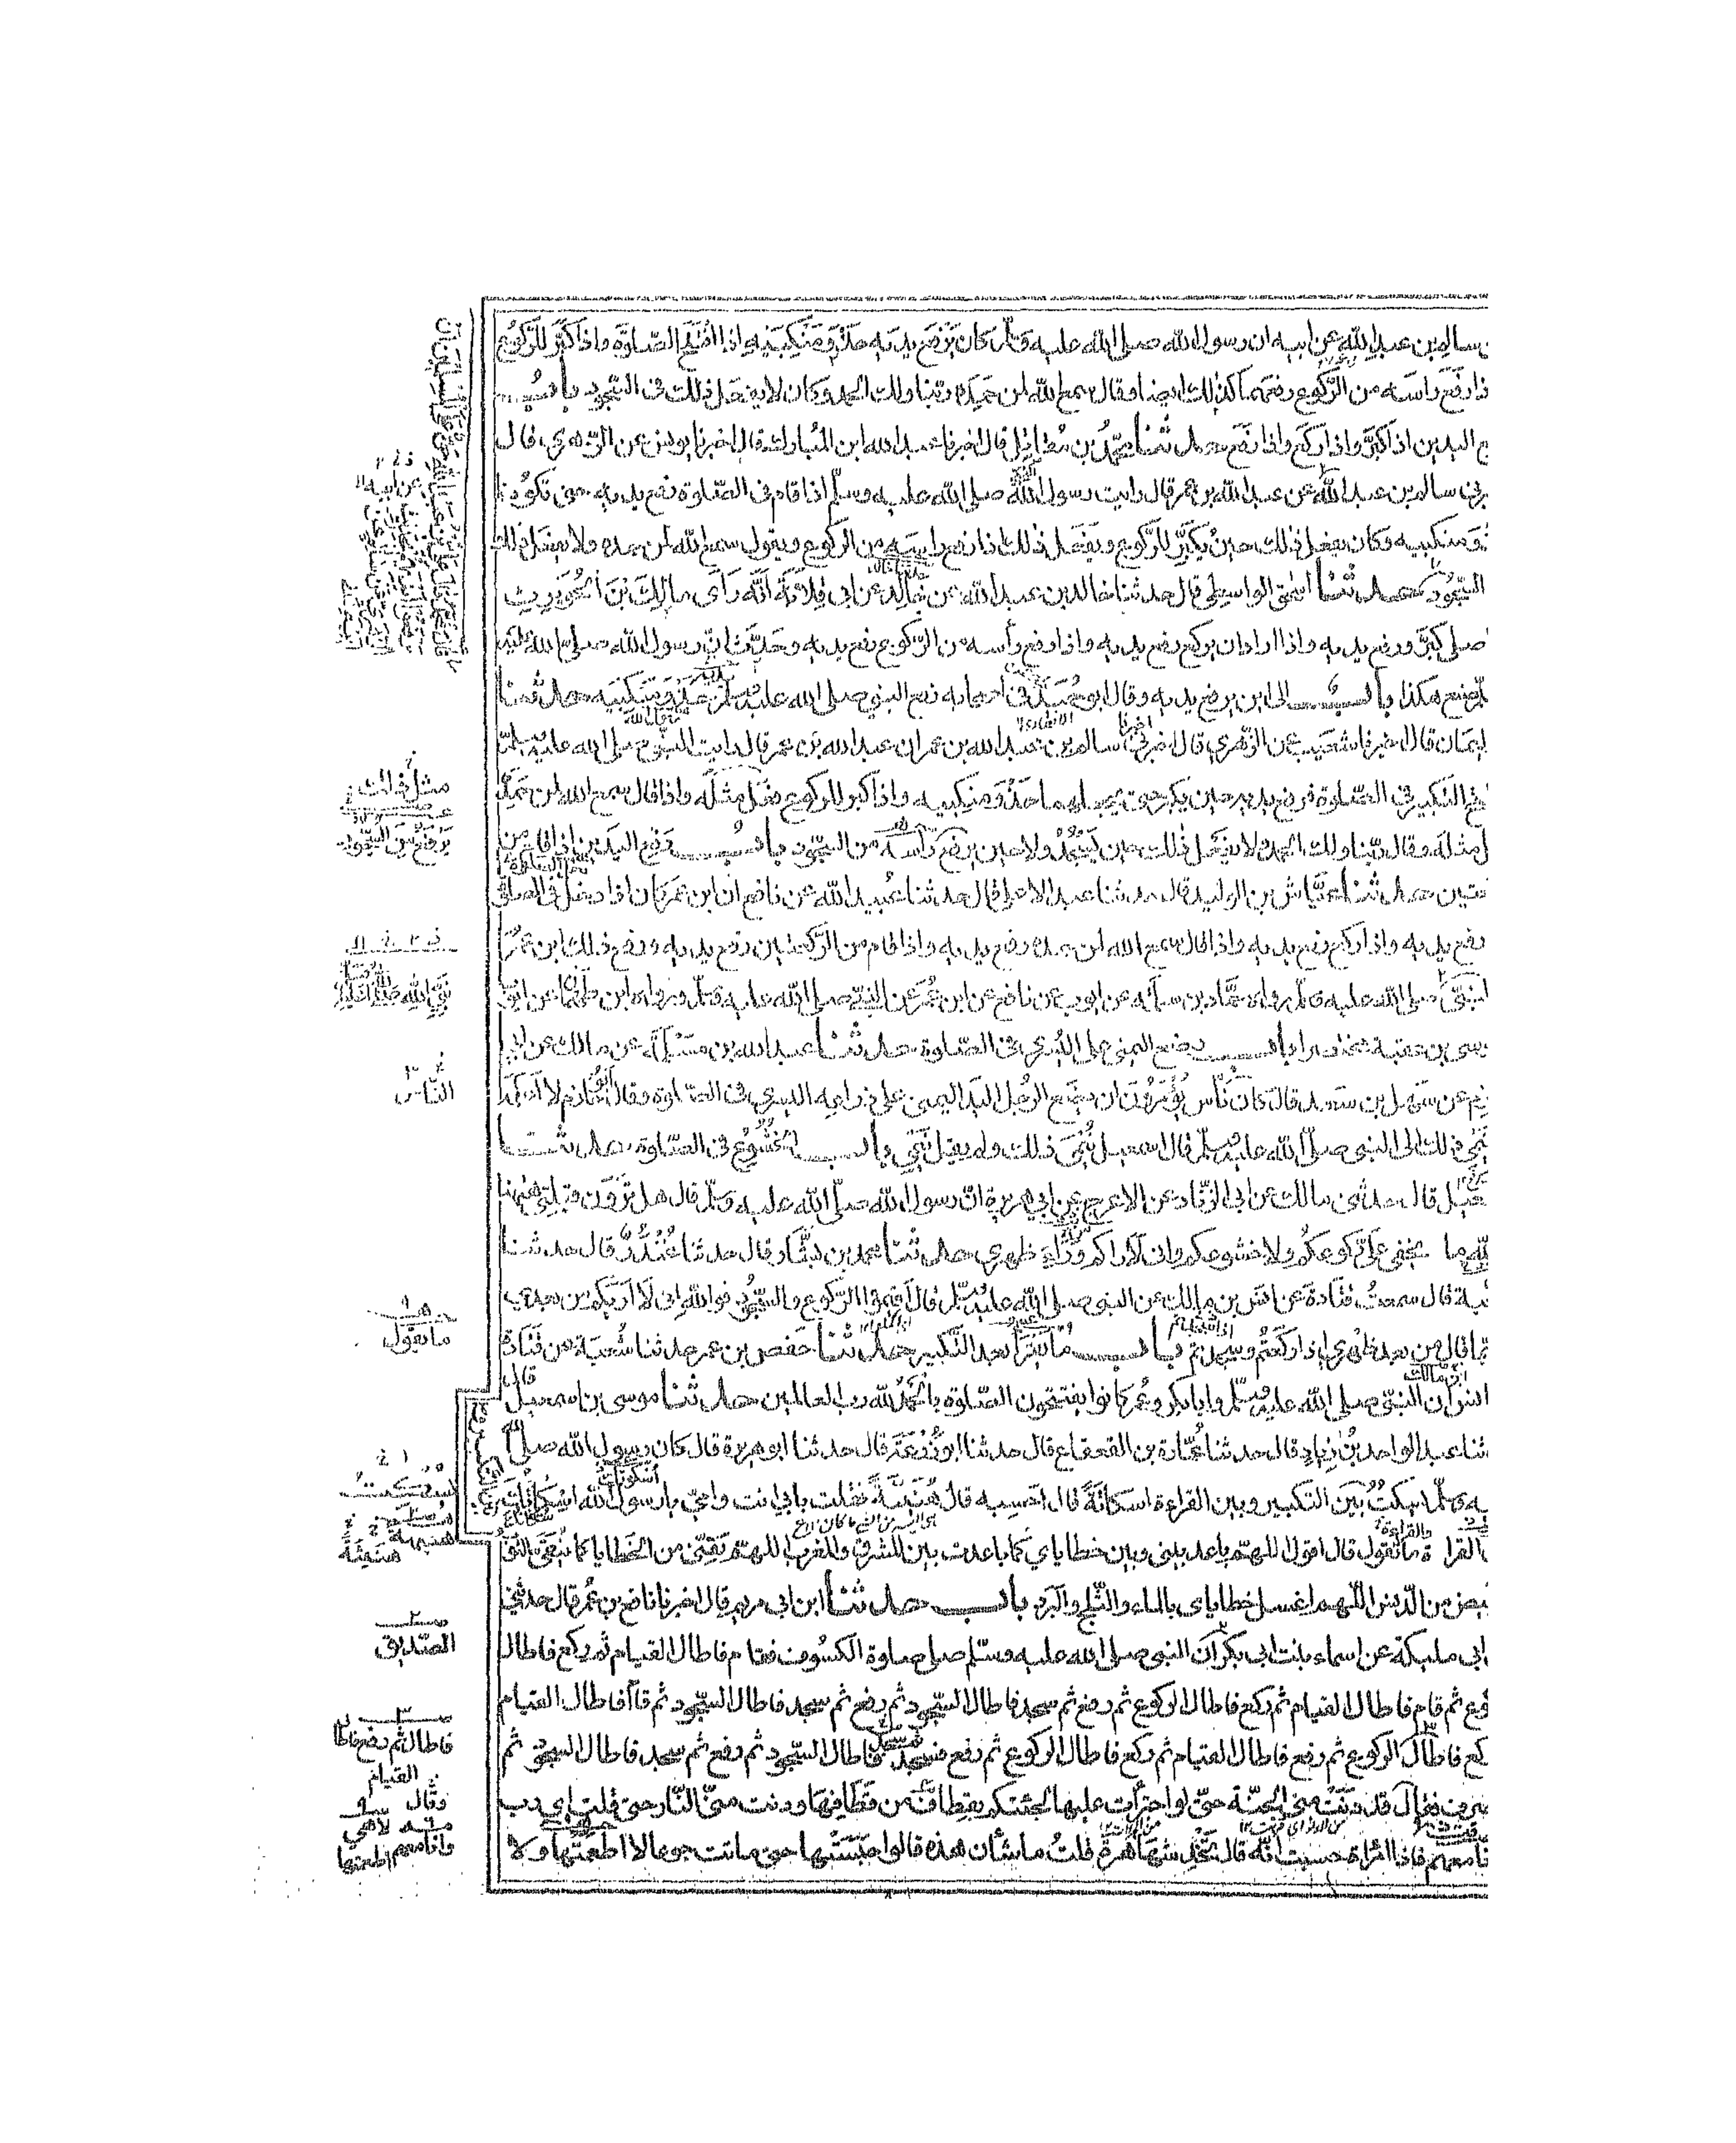 سالم بن عبد الله عن ابيه ان رسول الله صلى الله عليه وسلم كان يرفع يديه حذو منكبيه اذا افتتح الصلوة واذا كبر للركوع
ذا رفع راسه من الركوع رفعهما كذلك ايضا وقال سمع الله لمن حمده ربنا ولك الحمد وكان لا يفعل ذلك فى السجود باب
ع اليدين اذا كبر واذا ركع واذا رفع حدثنا محمد بن مقاتل قال اخبرنا عبد الله ابن المبارك قال اخبرنا يونس عن الزهرى قال
برنى سالم بن عبد الله عن عبد الله بن عمر قال رايت رسول الله صلى الله عليه وسلم اذا قام فى الصلوة رفع يديه حتى تكونا
ذو منكبيه وكان يفعل ذلك حين يكبر للركوع ويفعل ذلك اذا رفع راسه من الركوع ويقول سمع الله لمن حمده ولا يفعل ذلك
السجود حدثنا اسحق الواسطى قال حدثنا خالد بن عبد الله عن خالد عن ابى قلابة انه رأى مالك بن الحويرث
صلى كبر ورفع يديه واذا اراد ان يركع رفع يديه واذا رفع رأسه من الركوع رفع يديه وحدث ان رسول الله صلى الله عليه
صنع هكذا باب الى اين يرفع يديه وقال ابو حميد فى اصحابه رفع النبى صلى الله عليه وسلم حذو منكبيه حدثنا
ليمان قال اخبرنا شعيب عن الزهرى قال اخبرنى سالم بن عبد الله بن عمر ان عبد الله بن عمر قال رايت النبى صلى الله عليه وسلم
تتح التكبير فى الصلوة فرفع يديه حين يكبر حتى يجعلهما حذو منكبيه واذا كبر للركوع فعل مثله واذا قال سمع الله لمن حمده
ل مثله وقال ربنا ولك الحمد ولا يفعل ذلك حين يسجد ولا حين يرفع رأسه من السجود باب رفع اليدين اذا قام من
عتين حدثنا عياش بن الوليد قال حدثنا عبد الاعلى قال حدثنا عبيد الله عن نافع ان ابن عمر كان اذا دخل فى الصلوة
رفع يديه واذا ركع رفع يديه واذا قال سمع الله لمن حمده رفع يديه واذا قام من الركعتين رفع يديه ورفع ذلك ابن عمر
النبى صلى الله عليه وسلم رواه حماد بن سلمة عن ايوب عن نافع عن ابن عمر عن النبى صلى الله عليه وسلم ورواه ابن طهمان عن ايوب
وسى بن عقبة مختصرا باب وضع اليمنى على اليسرى فى الصلوة حدثنا عبد الله بن مسلمة عن مالك عن ابى
زم عن سهل بن سعد قال كان ناس يؤمرون ان يضع الرجل اليد اليمنى على ذراعه اليسرى فى الصلوة وقال ابو حازم لا اعلمه
ينمى ذلك الى النبى صلى الله عليه وسلم قال اسمعيل ينمى ذلك ولم يقل ينمى باب الخشوع فى الصلوة حدثنا
معيل قال حدثنى مالك عن ابى الزناد عن الاعرج عن ابى هريرة ان رسول الله صلى الله عليه وسلم قال هل ترون قبلتى ههنا
لله ما يخفى على ركوعكم ولا خشوعكم وانى لاراكم وراء ظهرى حدثنا محمد بن بشار قال حدثنا غندر قال حدثنا
عبة قال سمعت قتادة عن انس بن مالك عن النبى صلى الله عليه وسلم قال اقيموا الركوع والسجود فوالله انى لا اريكم من بعدى
بما قال من بعد ظهرى اذا ركعتم وسجدتم باب ما يقرأ بعد التكبير حدثنا حفص بن عمر حدثنا شعبة عن قتادة
انس ان النبى صلى الله عليه وسلم وابا بكر وعمر كانوا يفتتحون الصلوة بالحمد لله رب العالمين حدثنا موسى بن اسمعيل قال
ثنا عبد الواحد بن زياد قال حدثنا عمارة بن القعقاع قال حدثنا ابو زرعة قال حدثنا ابو هريرة قال كان رسول الله صلى الله
يه وسلم اسكت بين التكبير وبين القراءة اسكاتة قال احسبه قال هنية فقلت بابى انت وامى يا رسول الله اسكاتك بين
القراءة ما تقول قال اقول اللهم باعد بينى وبين خطاياى كما باعدت بين المشرق والمغرب اللهم نقنى من الخطايا كما ينقى الثوب
بيض من الدنس اللهم اغسل خطاياى بالماء والثلج والبرد باب حدثنا ابن ابى مريم قال اخبرنا نافع بن عمر قال حدثنى
ابى مليكة عن اسماء بنت ابى بكر ان النبى صلى الله عليه وسلم صلى صلوة الكسوف فقام فاطال القيام ثم ركع فاطال
كوع ثم قام فاطال القيام ثم ركع فاطال الركوع ثم رفع ثم سجد فاطال السجود ثم رفع ثم سجد فاطال السجود ثم قام فاطال القيام
كع فاطال الركوع ثم رفع فاطال القيام ثم ركع فاطال الركوع ثم رفع فسجد فاطال السجود ثم رفع ثم سجد فاطال السجود ثم
صرف فقال قد دنت منى الجنة حتى لو اجترأت عليها لجئتكم بقطاف من قطافها ودنت منى النار حتى قلت اى رب
نا معهم فاذا امرأة حسبت انه قال تخدشها هرة قلت ما شأن هذه قالوا حبستها حتى ماتت جوعا لا اطعمتها ولا
مثل ذلك
يرفع من السجود
نبى الله صلى الله عليه وسلم
الناس
ما يقول
يسكت
هنيهة
هنيئة
الصديق
فاطال ثم رفع فاطال
القيام
وقال
وانا معهم اطعمتها